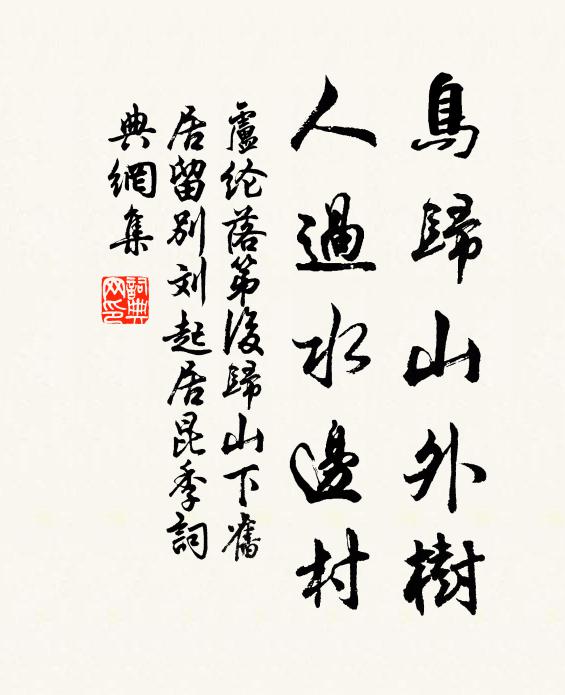 鳥歸山外樹
人過水邊村
盧纶落第後歸山下舊
居留別刘起居昆季詞
典網集
詞典
网印